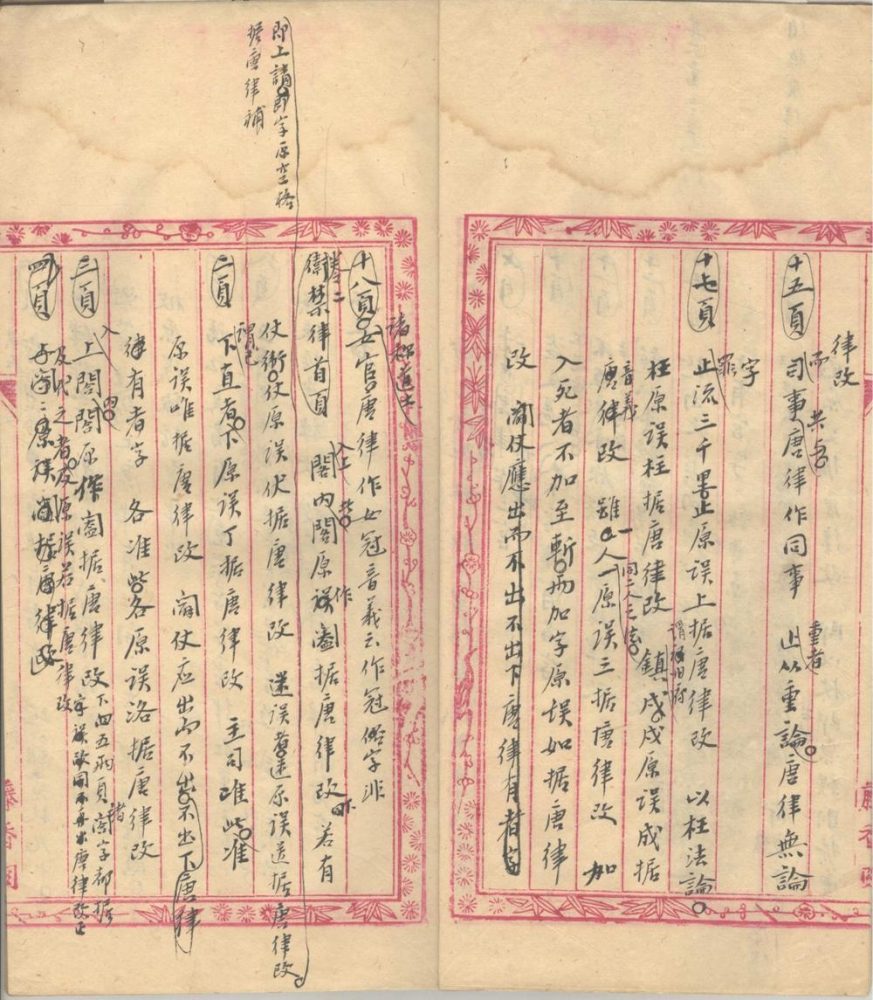 律改
十五頁 司事唐律作同事 止从重論唐律無論
字
十七頁 止流三千里止原誤上据唐律改 以枉法論
枉原誤柱据唐律改 鎮戍戍原誤成据
唐律改 雖一人一原誤三据唐律改 加
入死者不加至斬而加字原誤如据唐律
改 闌仗應出而不出不出下唐律有者字
十八頁 女官唐律作女冠音義云作冠俗字非
卷二
衛禁律首頁 閤内閤原作闔据唐律改 若有
仗衛仗原誤伏据唐律改 迷誤者迷原誤送据唐律改
二頁 下直者下原誤丁据唐律改 主司准此准
原誤唯据唐律改 闌仗应出而不出不出下唐律
律有者字 各准此各原誤洛据唐律改
三頁 入上閤閤原作闔据唐律改下四五兩頁諸閤字都据唐律改正
及代之者及原誤若据唐律改
四頁
即上請即字原空格
据唐律補